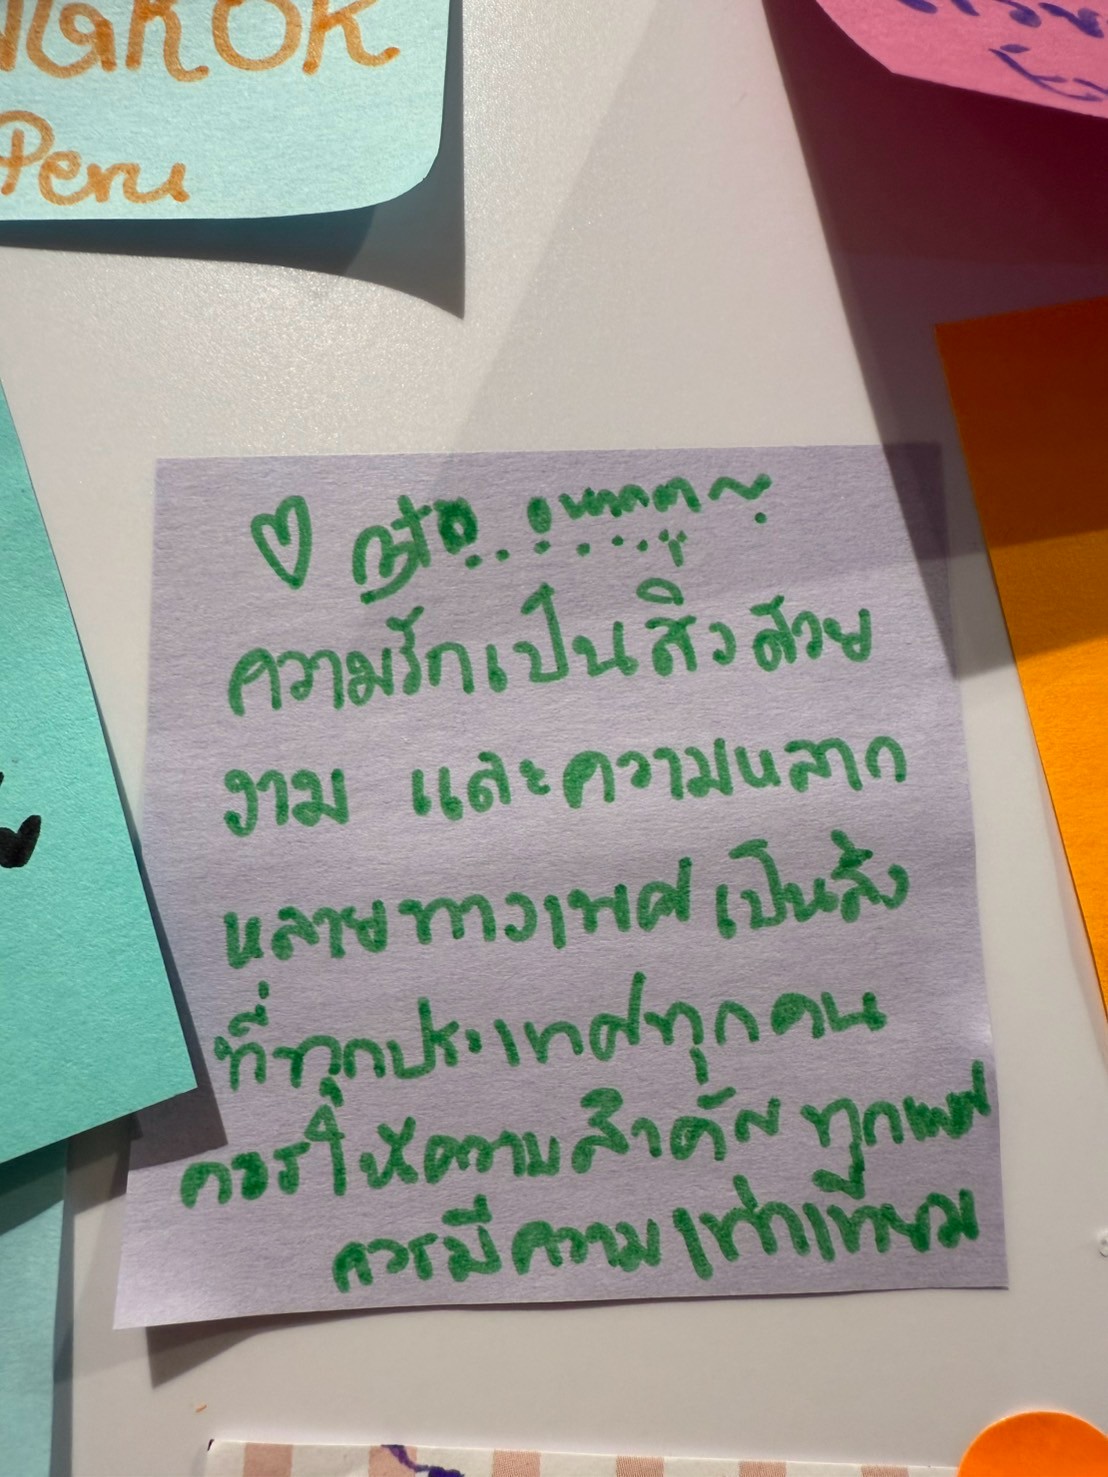 NGKOK
Peru
ความรักเป็นสิ่งสวย
งาม และความหลาก
หลายทางเพศ เป็นสิ่ง
ที่ทุกประเทศทุกคน
ควรให้ความสำคัญ ทุกเพศ
ควรมีความเท่าเทียม